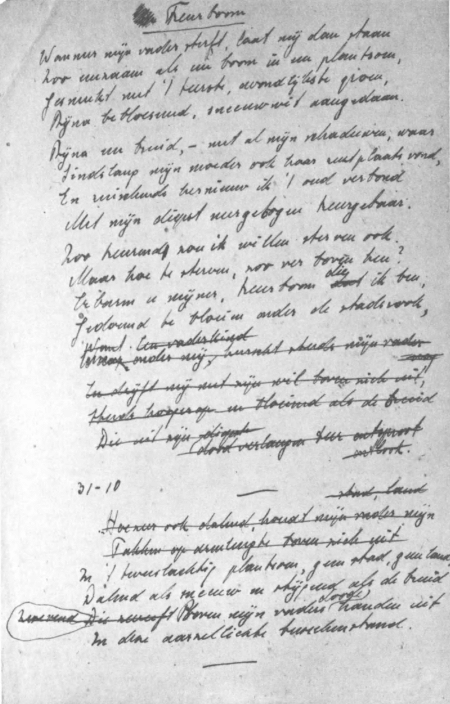 Treurboom
Wanneer mijn vader sterft, laat mij dan staan
Zoo eenzaam als een boom in een plantsoen,
Gesmukt met 't eerste, avondlijkste groen,
Bijna bebloesemd, sneeuwwit aangedaan.
Bijna een bruid, – met al mijn schaduwen, waar
Sindslang mijn moeder ook haar rustplaats vond,
En ruischende hernieuw ik 't oud verbond
Met mijn diepst neergebogen treurgebaar.
Zoo treurend zou ik willen sterven ook.
Maar hoe te sterven, zoo ver boven hen?
Erbarm u mijner, treurboom die ik ben,
Gedoemd te bloeien onder de stadsrook,
Want Een vaderkind
onder mij, steeds mijn vader
En drijft mij met zijn wil boven zich uit,
Steeds hooger op en bloeiend als de bruid
Die uit zijn diepste
doodsverlangen
31-10
stad, land
Hoezeer ook dalend houdt mijn vader mijn
Takken op armlengte boven zich uit
In 't tweeslachtig plantsoen, geen stad, geen land,
Dalend als sneeuw en stijgend als de bruid
Zwevend Die zweeft Boven mijn vaders hooge handen uit
In deze tusschenstand.